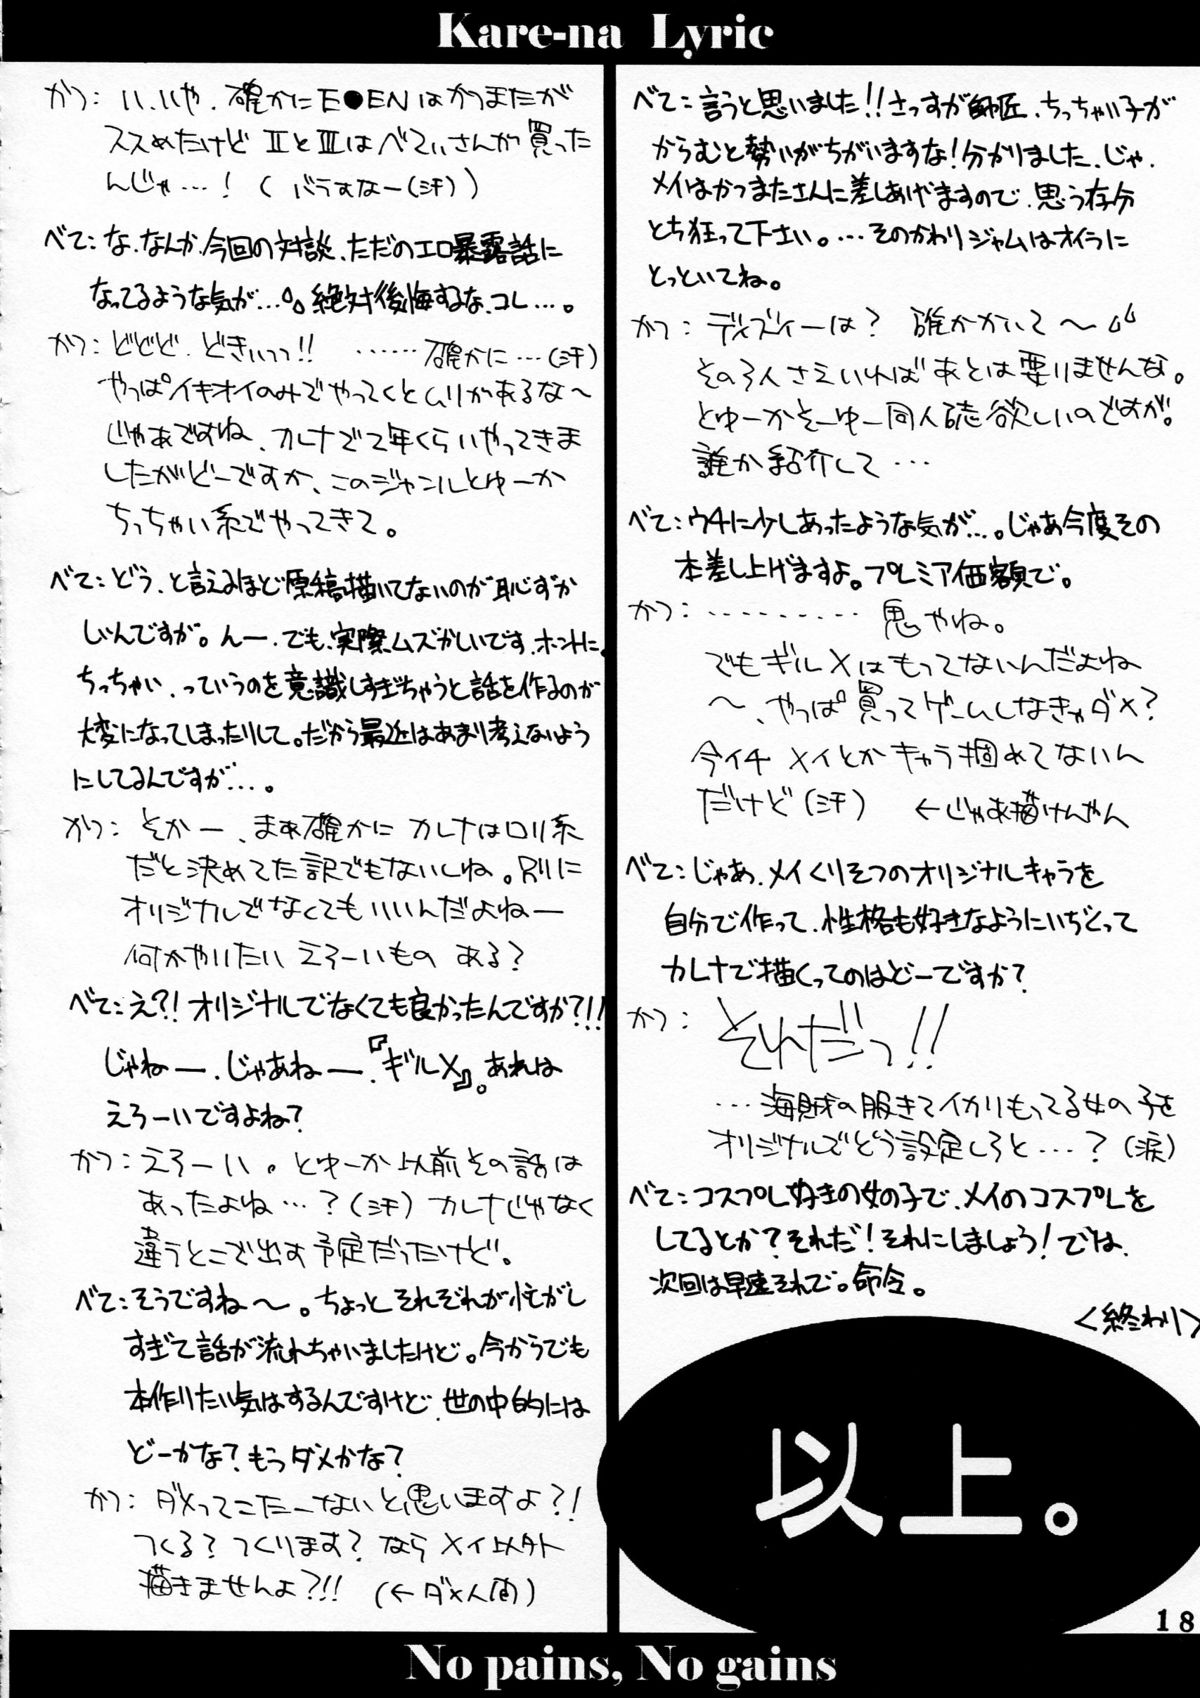 Kare-na Lyric
かつ：い、いや、確かにE●ENはかつまたが
ススめたけど ⅡとⅢはべてぃさんが買った
んじゃ…！（バラすなー(汗)）
べて：な、なんか、今回の対談、ただのエロ暴露話に
なってるような気が…。絶対後悔するな、コレ…。
かつ：どどど、どきぃっっ!! ……確かに…(汗)
やっぱイキオイのみでやってくとムリがあるな〜
じゃあですね、カレナで1年くらいやってきま
したがどーですか、このジャンルとゆーか
ちっちゃい系でやってきて。
べて：どう、と言えるほど原稿描いてないのが恥ずか
しいんですが。んー、でも、実際ムズかしいです、ホントに。
ちっちゃい、っていうのを意識しすぎちゃうと話を作るのが
大変になってしまったりして。だから最近はあまり考えないよう
にしてるんですが…。
かつ：そかー、まぁ確かに カレナはロリ系
だと決めてた訳でもないしね。別に
オリジナルでなくてもいいんだよねー
何かやりたい えろーいもの ある？
べて：え?! オリジナルでなくても良かったんですか?!!
じゃねー、じゃあねー、『ギルX』。あれは
えろーいですよね？
かつ：えろーい。とゆーか以前その話は
あったよね…？(汗) カレナじゃなく
違うとこで出す予定だったけど。
べて：そうですね〜。ちょっとそれぞれが忙がし
すぎて話が流れちゃいましたけど。今からでも
本作りたい気はするんですけど、世の中的には
どーかな？もうダメかな？
かつ：ダメってこたーないと思いますよ?!
つくる？つくります？なら メイ以外
描きませんよ?!!（←ダメ人間）
べて：言うと思いました!! さっすが師匠、ちっちゃい子が
からむと勢いがちがいますな！分かりました、じゃ、
メイはかつまたさんに差しあげますので、思う存分
とち狂って下さい。…そのかわりジャムはオイラに
とっといてね。
かつ：ディズィーは？ 誰かかいて〜
その3人さえいればあとは要りませんな。
とゆーかそーゆー同人誌欲しいのですが。
誰か紹介して…
べて：ウチに少しあったような気が…。じゃあ今度その
本差し上げますよ。プレミア価額で。
かつ：………… 鬼やね。
でもギルXはもってないんだよね
〜、やっぱ買ってゲームしなきゃダメ？
今イチ メイとかキャラ掴めてないん
だけど(汗) ←じゃあ描けんやん
べて：じゃあ、メイくりそつのオリジナルキャラを
自分で作って、性格も好きなようにいぢくって
カレナで描くってのはどーですか？
かつ：それだっ!!
…海賊の服きてイカリもってる女の子を
オリジナルでどう設定しろと…？(涙)
べて：コスプレ好きの女の子で、メイのコスプレを
してるとか？それだ！それにしましょう！では、
次回は早速それで。命令。
＜終わり＞
以上。
18
No pains, No gains